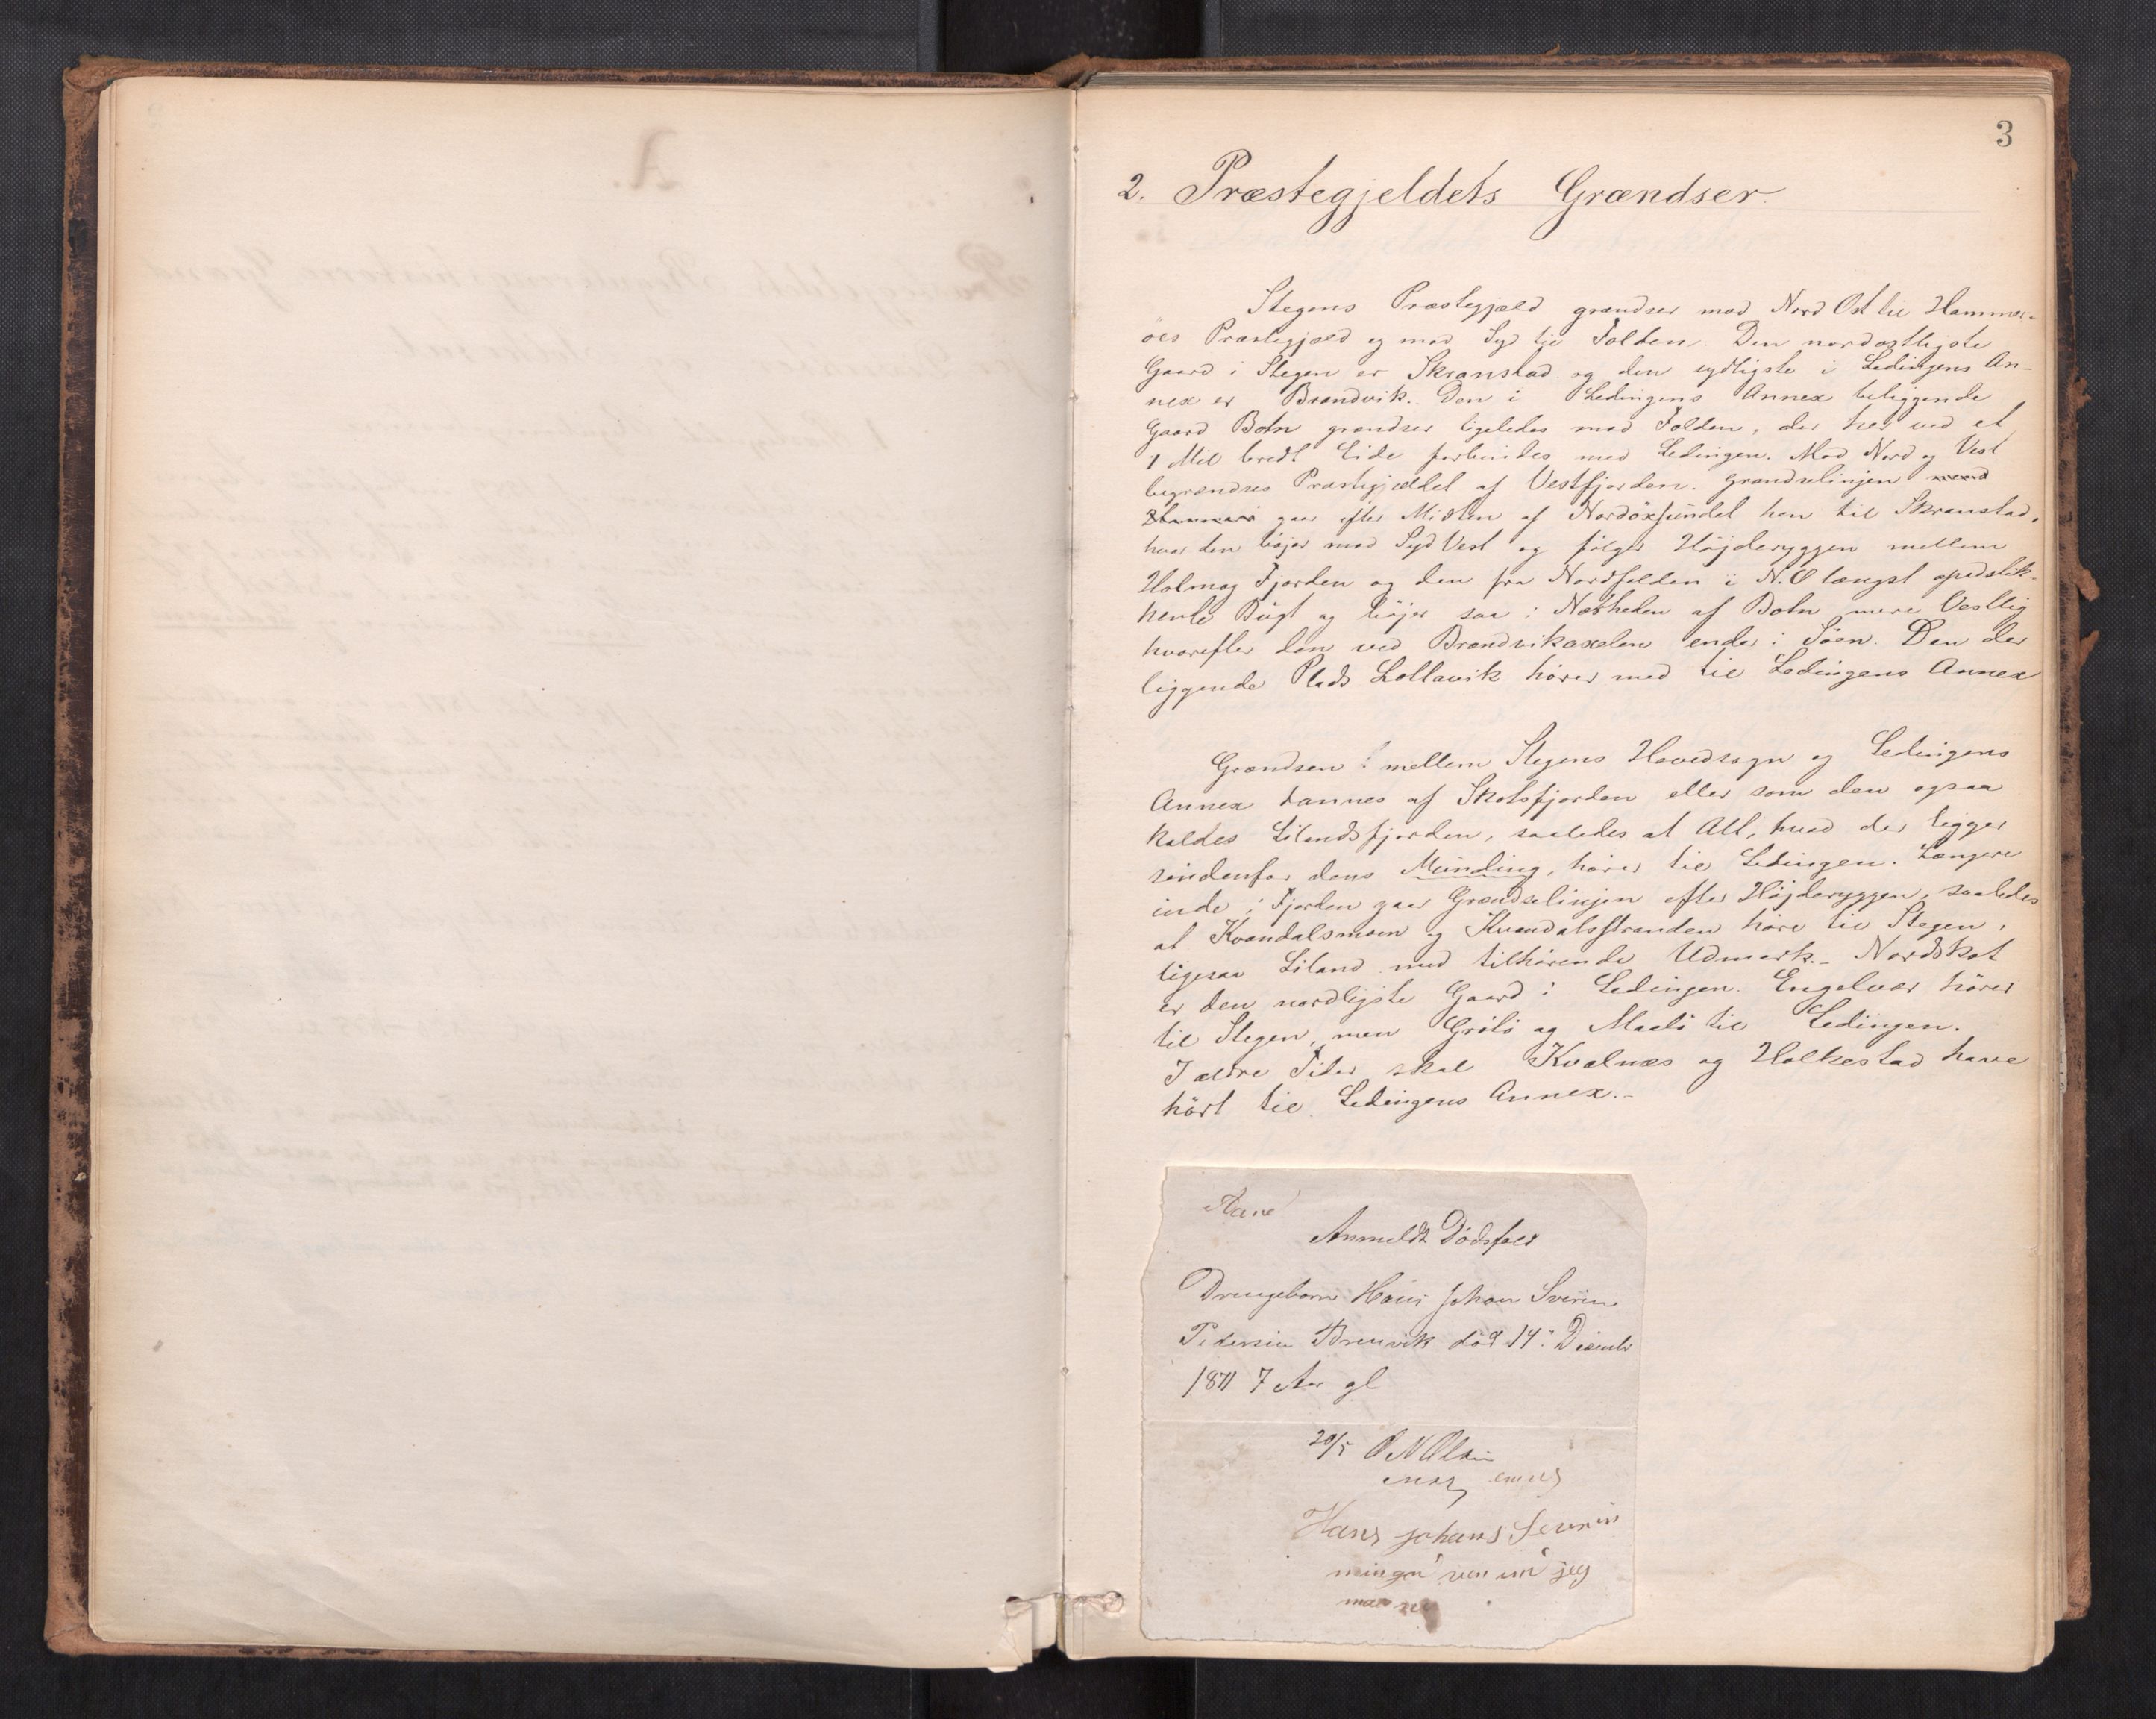 3
2. Præstegjeldets Grændser.
Stegens Præstegjæld grændser mod Nord Ost til Hammer-
öes Præstegjæld og mod Syd til Folden. Den nordostligste
Gaard i Stegen er Skranstad og den sydligste i Ledingens An-
nex er Brandvik. Den i Ledingens Annex beliggende
Gaard Botn grændser ligeledes mod Folden, der her ved et
1 Mil bredt Eide forbindes med Ledingen. Mod Nord og Vest
begrændses Præstegjældet af Vestfjorden. Grændselinjen
gaar efter Midten af Nordöxsundet hen til Skranstad,
hvor den böjer mod Syd Vest og fölger Höjderyggen mellem
Holmog Fjorden og den fra Nordfolden i N.O længst opadstik-
kende Bugt og böjer saa i Nærheden af Botn mere Vestlig
hvorefter den ved Brandvikaxelen ender i Söen. Den der
liggende Plads Lollavik hörer med til Ledingens Annex
Grændsen mellem Stegens Hovedsogn og Ledingens
Annex dannes af Skotsfjorden eller som den ogsaa
kaldes Lilandsfjorden, saaledes at Alt, hvad der ligger
söndenfor dens Munding, hörer til Ledingen. Længere
inde i Fjorden gaar Grændselinjen efter Höjderyggen, saaledes
at Kvandalsmoen og Kvandalsstranden höre til Stegen,
ligesaa Liland med tilhörende Udmark. Nordskot
er den nordligste Gaard i Ledingen. Engelvær hörer
til Stegen, men Grötö og Maalö til Ledingen.
I ældre Tider skal Kvalnæs og Holkestad have
hört til Ledingens Annex.
Anmeldt Dödsfald
Drengebarn Hans Johan Sverin
Pedersen Brenvik död 14: Decembr
1871 7 Aar gl
20/5 O N Olsen
Hans johans Severin
jeg